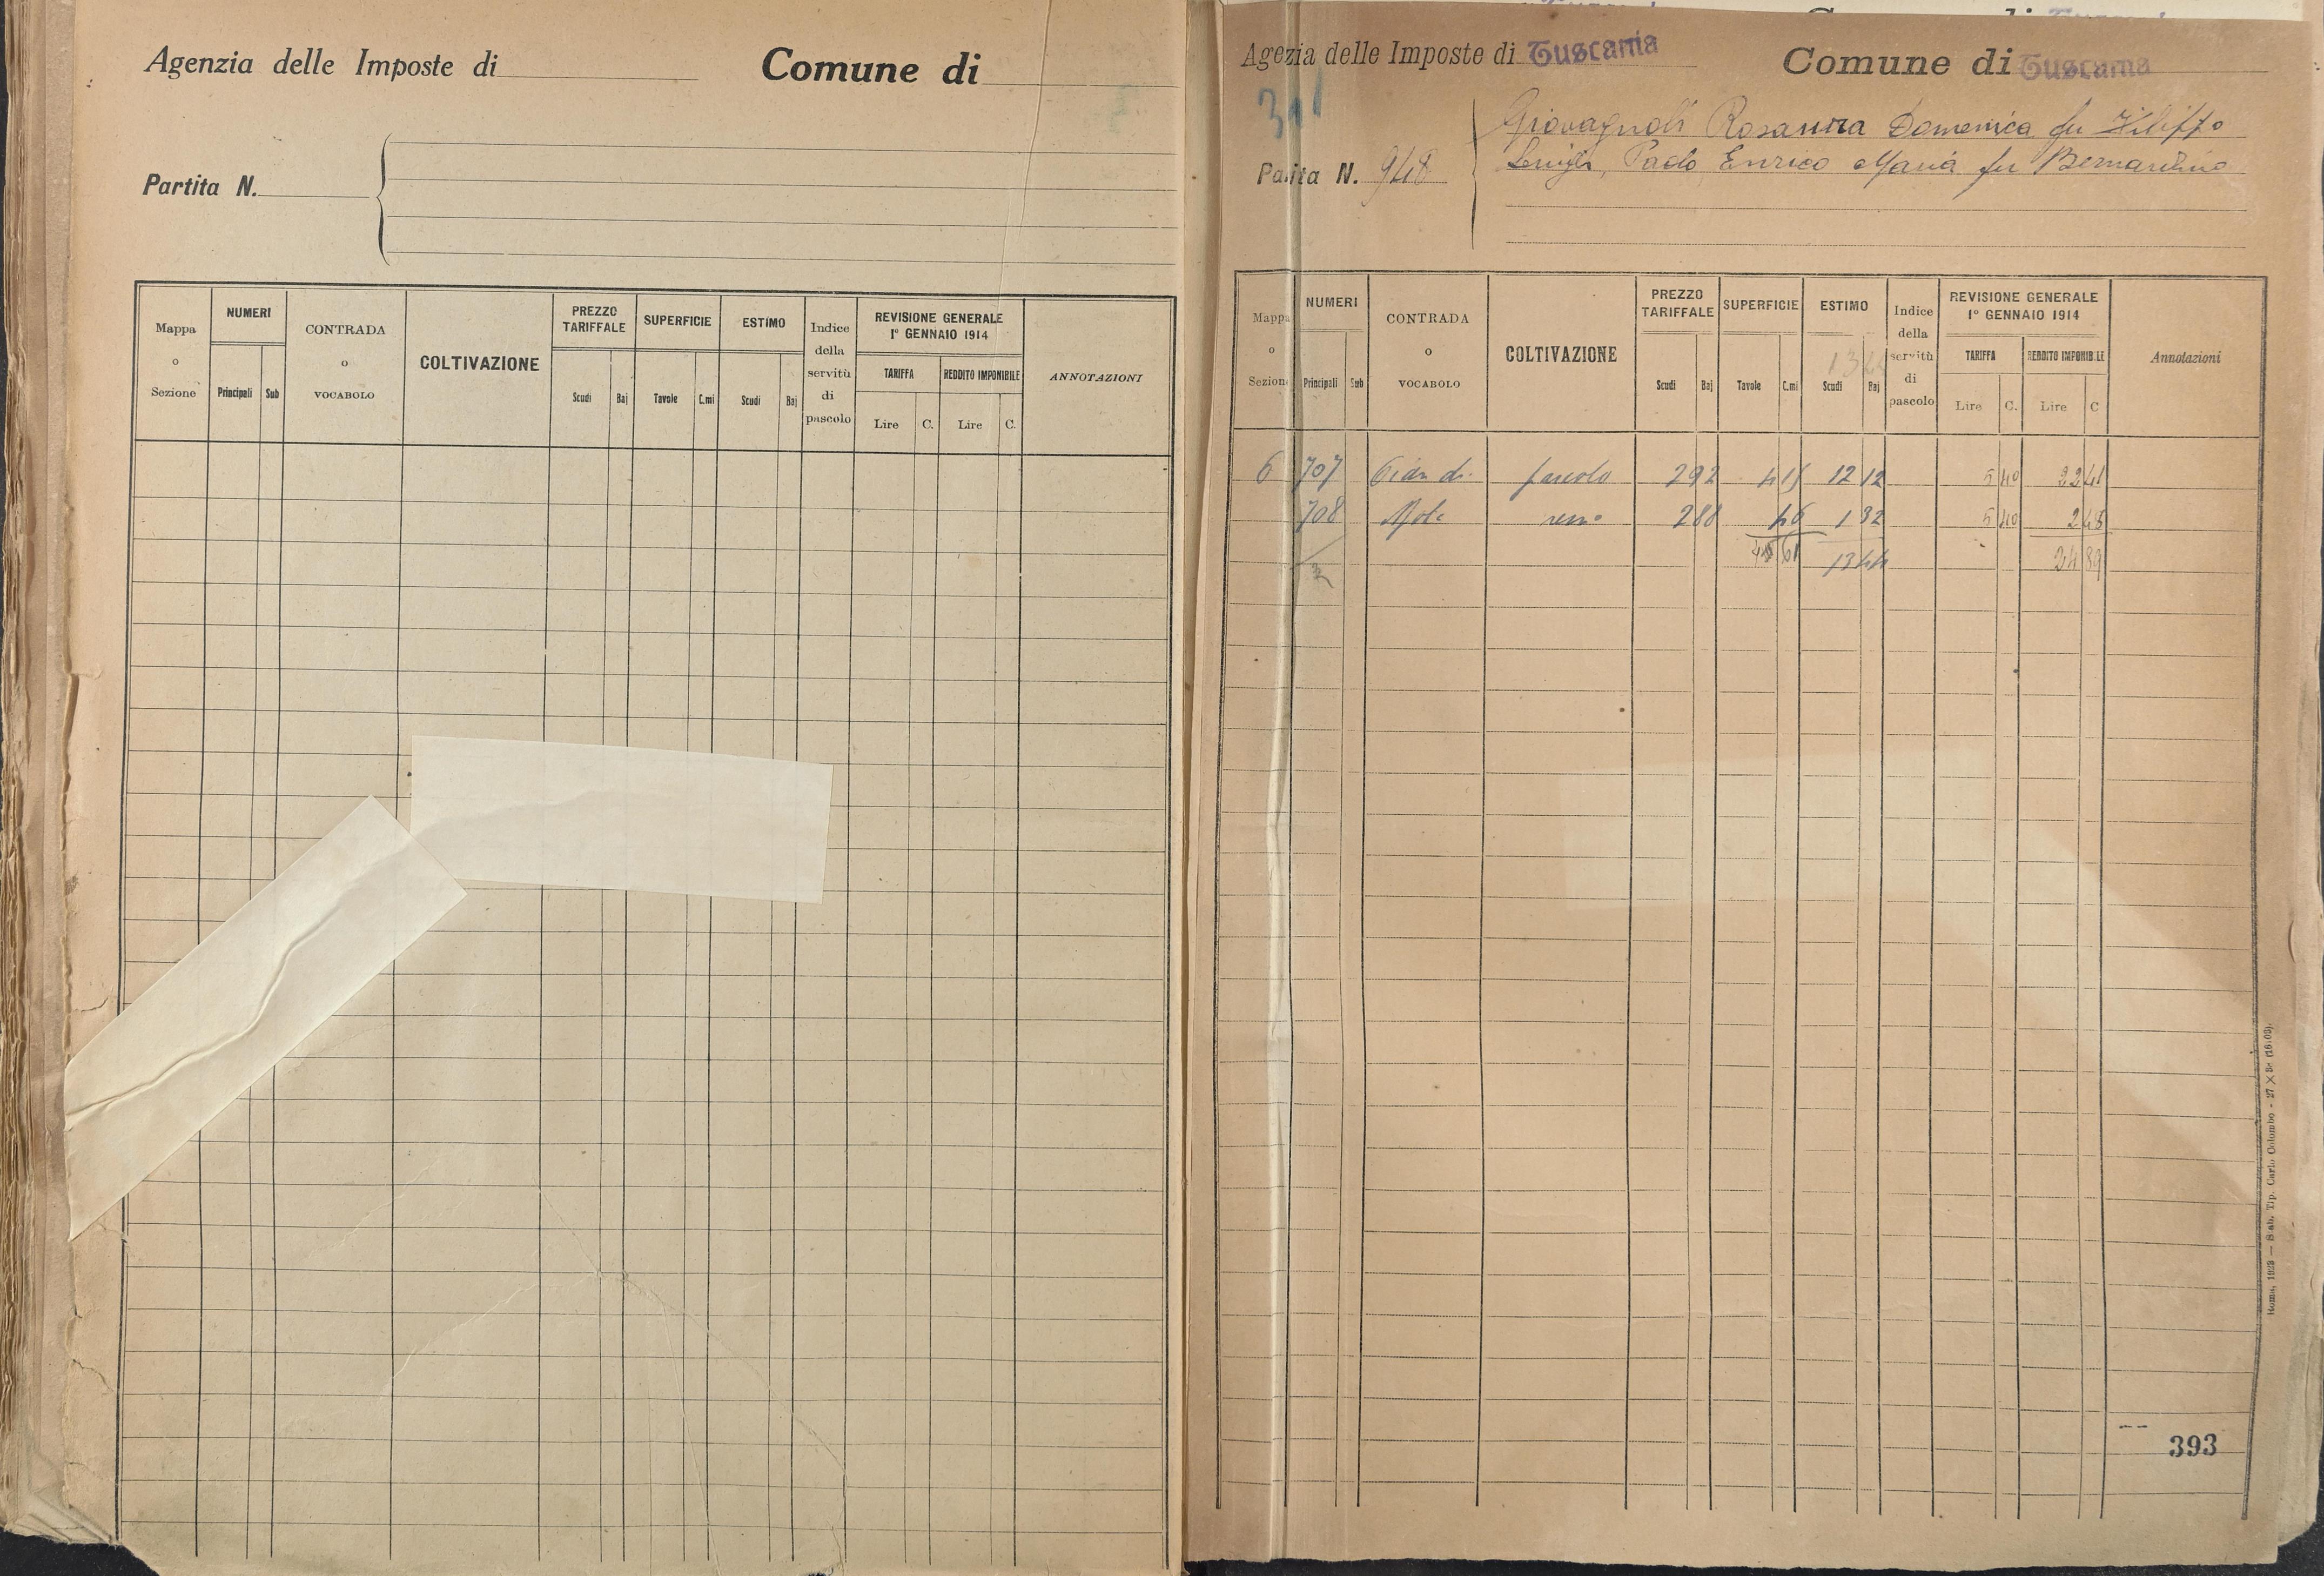 Agenzia delle Imposte di
Comune di
Partita N.
Mappa o Sezione
NUMERI
Principali
Sub
CONTRADA o VOCABOLO
COLTIVAZIONE
PREZZO TARIFFALE
Scudi
Baj
SUPERFICIE
Tavole
C.mi
ESTIMO
Scudi
Baj
Indice della servitù di pascolo
REVISIONE GENERALE
1° GENNAIO 1914
TARIFFA
REDDITO IMPONIBILE
Lire
C.
Lire
C.
ANNOTAZIONI
Agezia delle Imposte di Tuscania
Comune di Tuscania
Partita N. 948
Giovagnoli Rosanna Domenica fu Filippo
Luigi, Paolo, Enrico Maria fu Bernardino
Mappa o Sezione
NUMERI
Principali
Sub
CONTRADA o VOCABOLO
COLTIVAZIONE
PREZZO TARIFFALE
Scudi
Baj
SUPERFICIE
Tavole
C.mi
ESTIMO
Scudi
Baj
Indice della servitù di pascolo
REVISIONE GENERALE
1° GENNAIO 1914
TARIFFA
REDDITO IMPONIBILE
Lire
C.
Lire
C
Annotazioni
6 707 Pian di pascolo 2 92 4 15 12 12 5 40 22 41
708 Mola 2 88 46 1 32 5 40 2 48
4 61 13 44 24 89
393
Roma, 1923 — Stab. Tip. Carlo Colombo